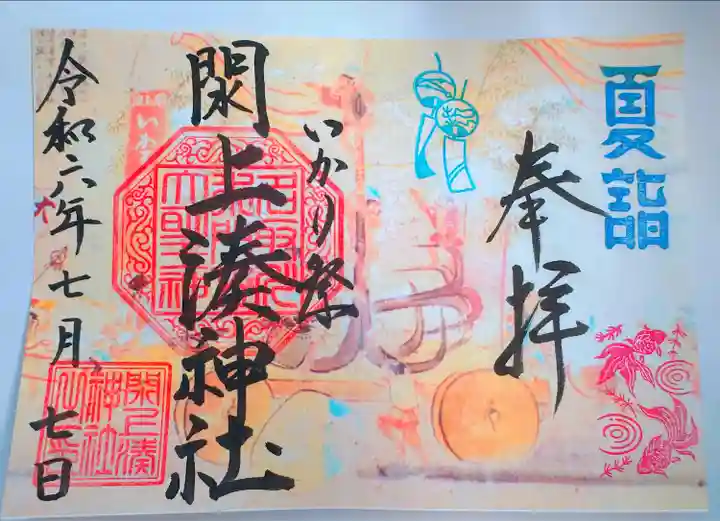 夏詣
奉拝
いかり祭
閖上湊神社
令和六年七月七日